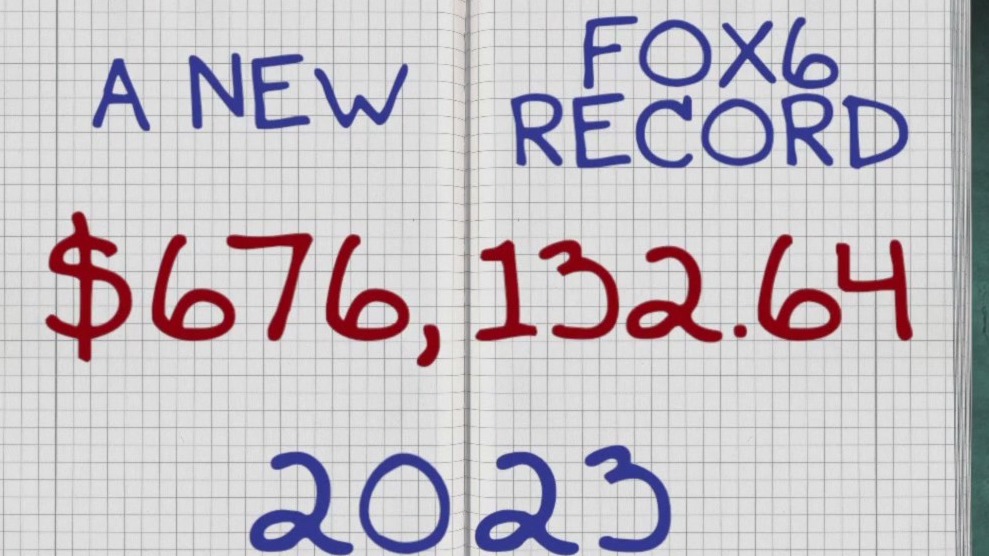 A NEW FOX6
RECORD
$676,132.64
2023